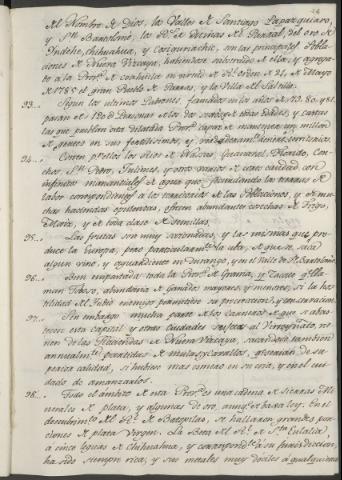 del Nombre de Dios, los Valles de Santiago Papasquiaro,
y Sn. Bartolomé, los Rs. de Minas del Parral, del oro de
Indehe, Chihuahua, y Cosiguriachic, son las principales Pobla-
ciones de Nueva Vizcaya, habiendose substraido de ella, y agrega-
do a la Prova. de Coahuila en virtud de Rl. orden de 21 de Mayo
de 1785 el gran Pueblo de Parras, y la Villa del Saltillo.
23... Segun los ultimos Padrones formados en los años de 780. y 81
pasan de 120 @ Personas de los dos sexos, de todas edades, y castas
las que pueblan esta dilatada Prova. capaz de mantener un millon
de gentes en sus fertilisimos, y
24... Corren pr. ellos los Rios de Nasas, Guanaval, Florido, Con-
chos, Sn. Pedro, Julimes, y otros varios de corto caudal con
infinitos manantiales de agua que fecundizando las tierras de
labor correspondientes a los vecindarios de las Poblaciones, y de mu-
chas haciendas opulentas, ofrecen abundantes cosechas de Trigo,
Maiz, y de toda clase de semillas.
25... Las frutas son muy sazonadas, y las mismas que pro-
duce la Europa, pero particularmte. la uba, de que se saca
algun vino, y aguardiente en Durango, y en el Valle de Sn. Bartolomé
26... Bien empastada toda la Prova. de Grama, y Zacate qe. lla-
man Toboso, abundaria de Ganados mayores, y menores, si la hos-
tilidad del Indio enemigo permitiera su procreacion, y conservacion.
27... Sin embargo mucha parte de los carneros de que se abas-
tecen esta capital y otras ciudades sugetas al Virreynato, vie-
nen de las Haciendas de Nueva Vizcaya, sacandose tambien
annualmte. partidas de mulas, y cavallos, que serian de su-
perior calidad, si hubiese mas esmero en su cria, y en el cui-
dado de amanzarlos.
28... Todo el ambito de esta Prova. es una cadena de sierras Mi-
nerales de plata, y algunas de oro, aunqe. de baxa ley. En el
descubrimto. del Rl. de Batopilas, se hallaron grandes por-
ciones de plata virgen. La Beta del Rl. de Sta. Eulalia
a cinco leguas de Chihuahua, y correspondte. a su jurisdiccion,
ha sido siempre rica, y sus metales muy dociles a qualquiera